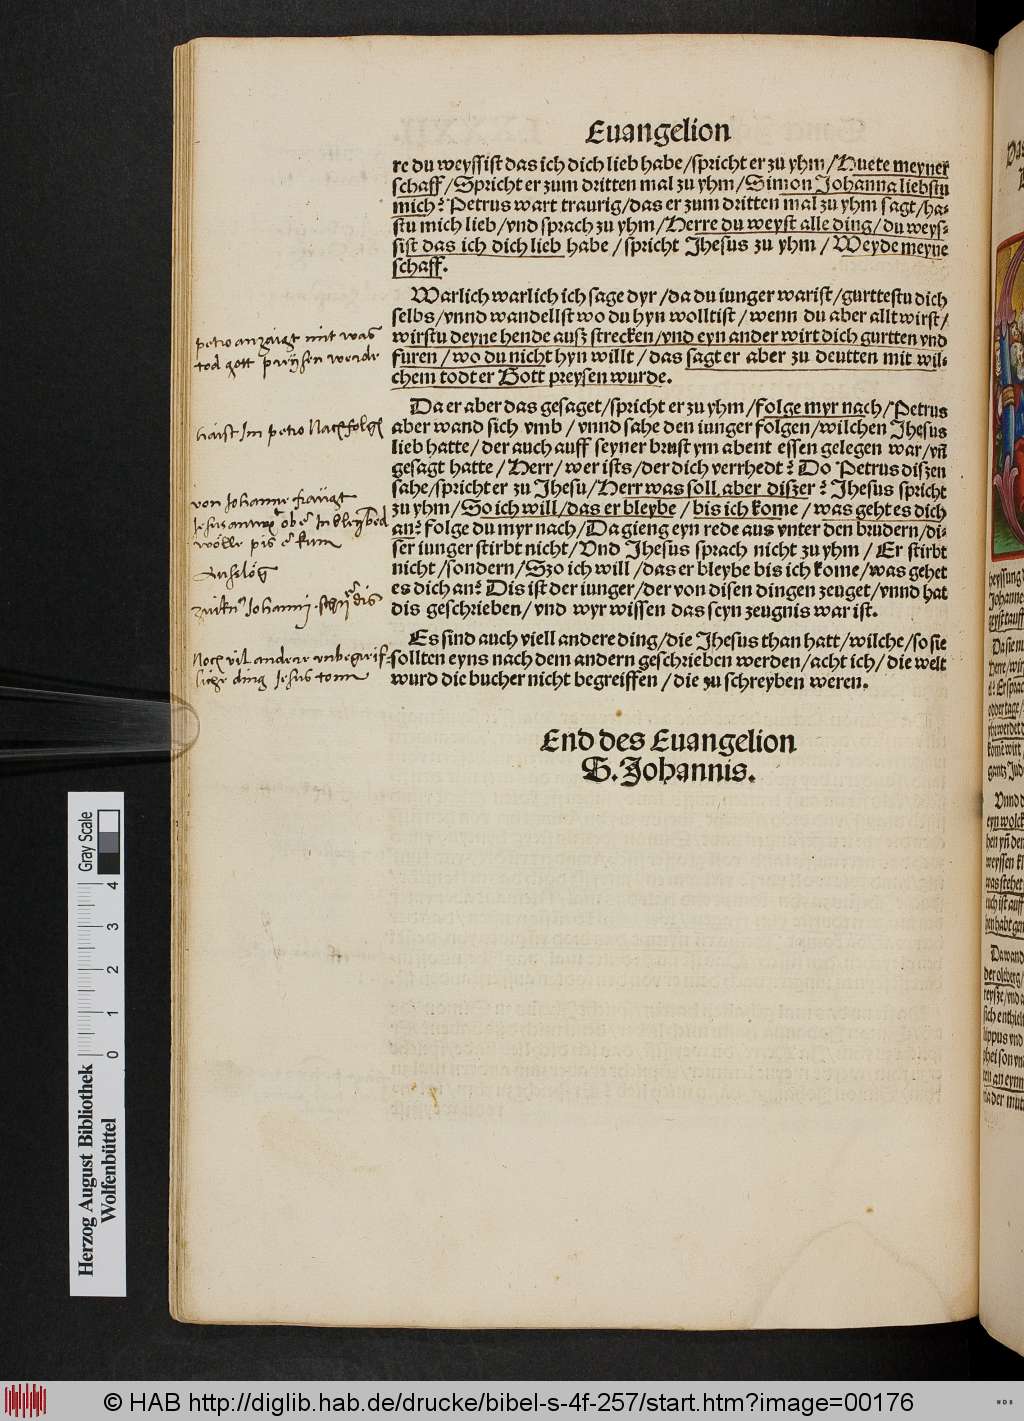 Euangelion
re du weyssist das ich dich lieb habe/spricht er zu yhm/Huete meyner
schaff/Spricht er zum dritten mal zu yhm/Simon Johanna liebstu
mich? Petrus wart traurig/das er zum dritten mal zu yhm sagt/ha-
stu mich lieb/vnd sprach zu yhm/Herre du weyst alle ding/du weys-
sist das ich dich lieb habe/spricht Jhesus zu yhm/Weyde meyne
schaff.
Warlich warlich ich sage dyr/da du iunger warist/gurttestu dich
selbs/vnnd wandellst wo du hyn wolltist/wenn du aber allt wirst/
wirstu deyne hende ausz strecken/vnd eyn ander wirt dich gurtten vnd
furen/wo du nicht hyn willt/das sagt er aber zu deutten mit wil-
chem todt er Gott preysen wurde.
petro anzaigt mit was
tod gott preysen werde
Da er aber das gesaget/spricht er zu yhm/folge myr nach/Petrus
aber wand sich vmb/vnnd sahe den iunger folgen/wilchen Jhesus
lieb hatte/der auch auff seyner brust ym abent essen gelegen war/vñ
gesagt hatte/Herr/wer ists/der dich verrhedt? Do Petrus diszen
sahe/spricht er zu Jhesu/Herr was soll aber diszer? Jhesus spricht
zu yhm/So ich will/das er bleybe/bis ich kome/was geht es dich
an? folge du myr nach/Da gieng eyn rede aus vnter den brudern/di-
ser iunger stirbt nicht/Vnd Jhesus sprach nicht zu yhm/Er stirbt
nicht/sondern/Szo ich will/das er bleybe bis ich kome/was gehet
es dich an? Dis ist der iunger/der von disen dingen zeuget/vnnd hat
dis geschrieben/vnd wyr wissen das seyn zeugnis war ist.
haist Im petro Nachfolgen
von Johanne fraugt
Jesus
wölle pis kum
Johanni dis
Es sind auch viell andere ding/die Jhesus than hatt/wilche/so sie
sollten eyns nach dem andern geschrieben werden/acht ich/die welt
wurd die bucher nicht begreiffen/die zu schreyben weren.
Noch vil andere vnbegreif-
liche ding Jesus
End des Euangelion
S. Johannis.
Gray Scale
4
3
2
1
0
Herzog August Bibliothek
Wolfenbüttel
© HAB http://diglib.hab.de/drucke/bibel-s-4f-257/start.htm?image=00176